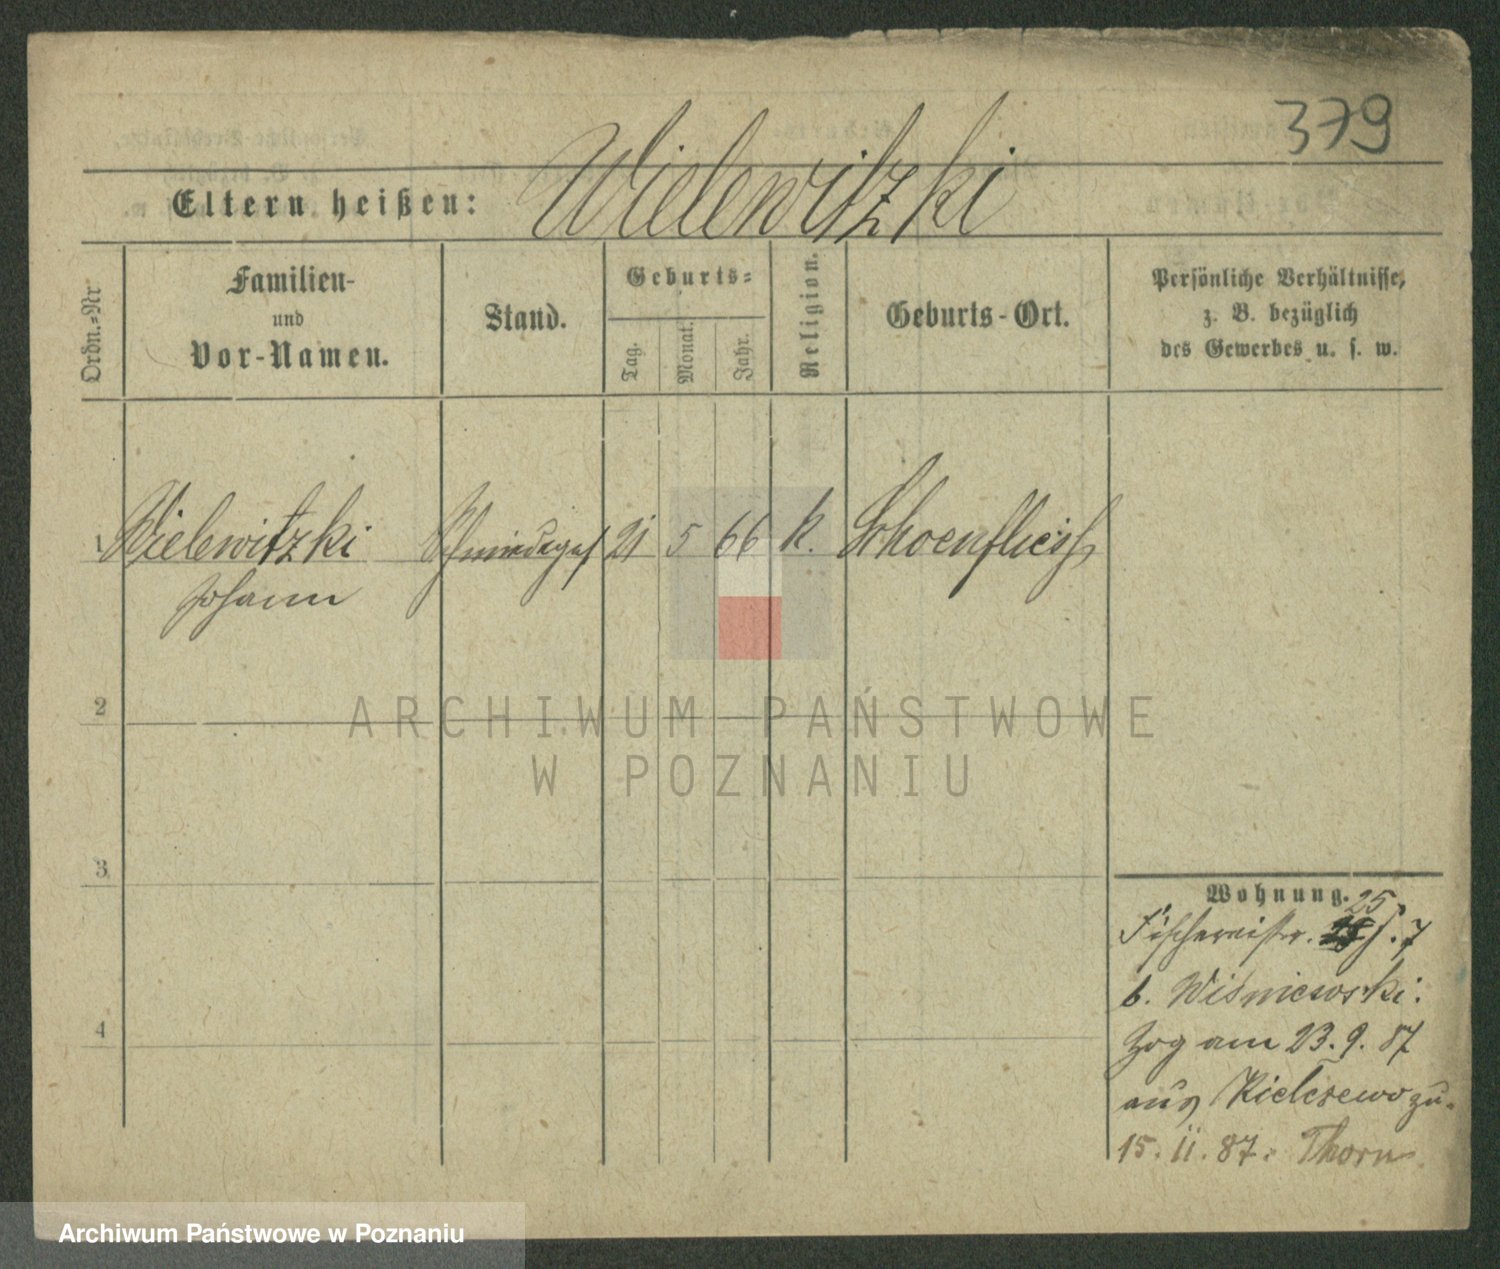 379
Eltern heißen: Wielewitzki
Ordn.-Nr
Familien-
und
Vor-Namen.
Stand.
Geburts-
Tag.
Monat.
Jahr.
Religion.
Geburts-Ort.
Persönliche Verhältnisse,
z. B. bezüglich
des Gewerbes u. s. w.
1 Wielewitzki Schmiedeges 21 5 66 k. Schoenfliess
Johann
2
3
4
ARCHIWUM PAŃSTWOWE
W POZNANIU
Wohnung.
25
Fischereistr. 7
b. Wiśniewski.
Zog am 23. 9. 87
aus Kielczewo zu.
15. 11. 87. Thorn
Archiwum Państwowe w Poznaniu